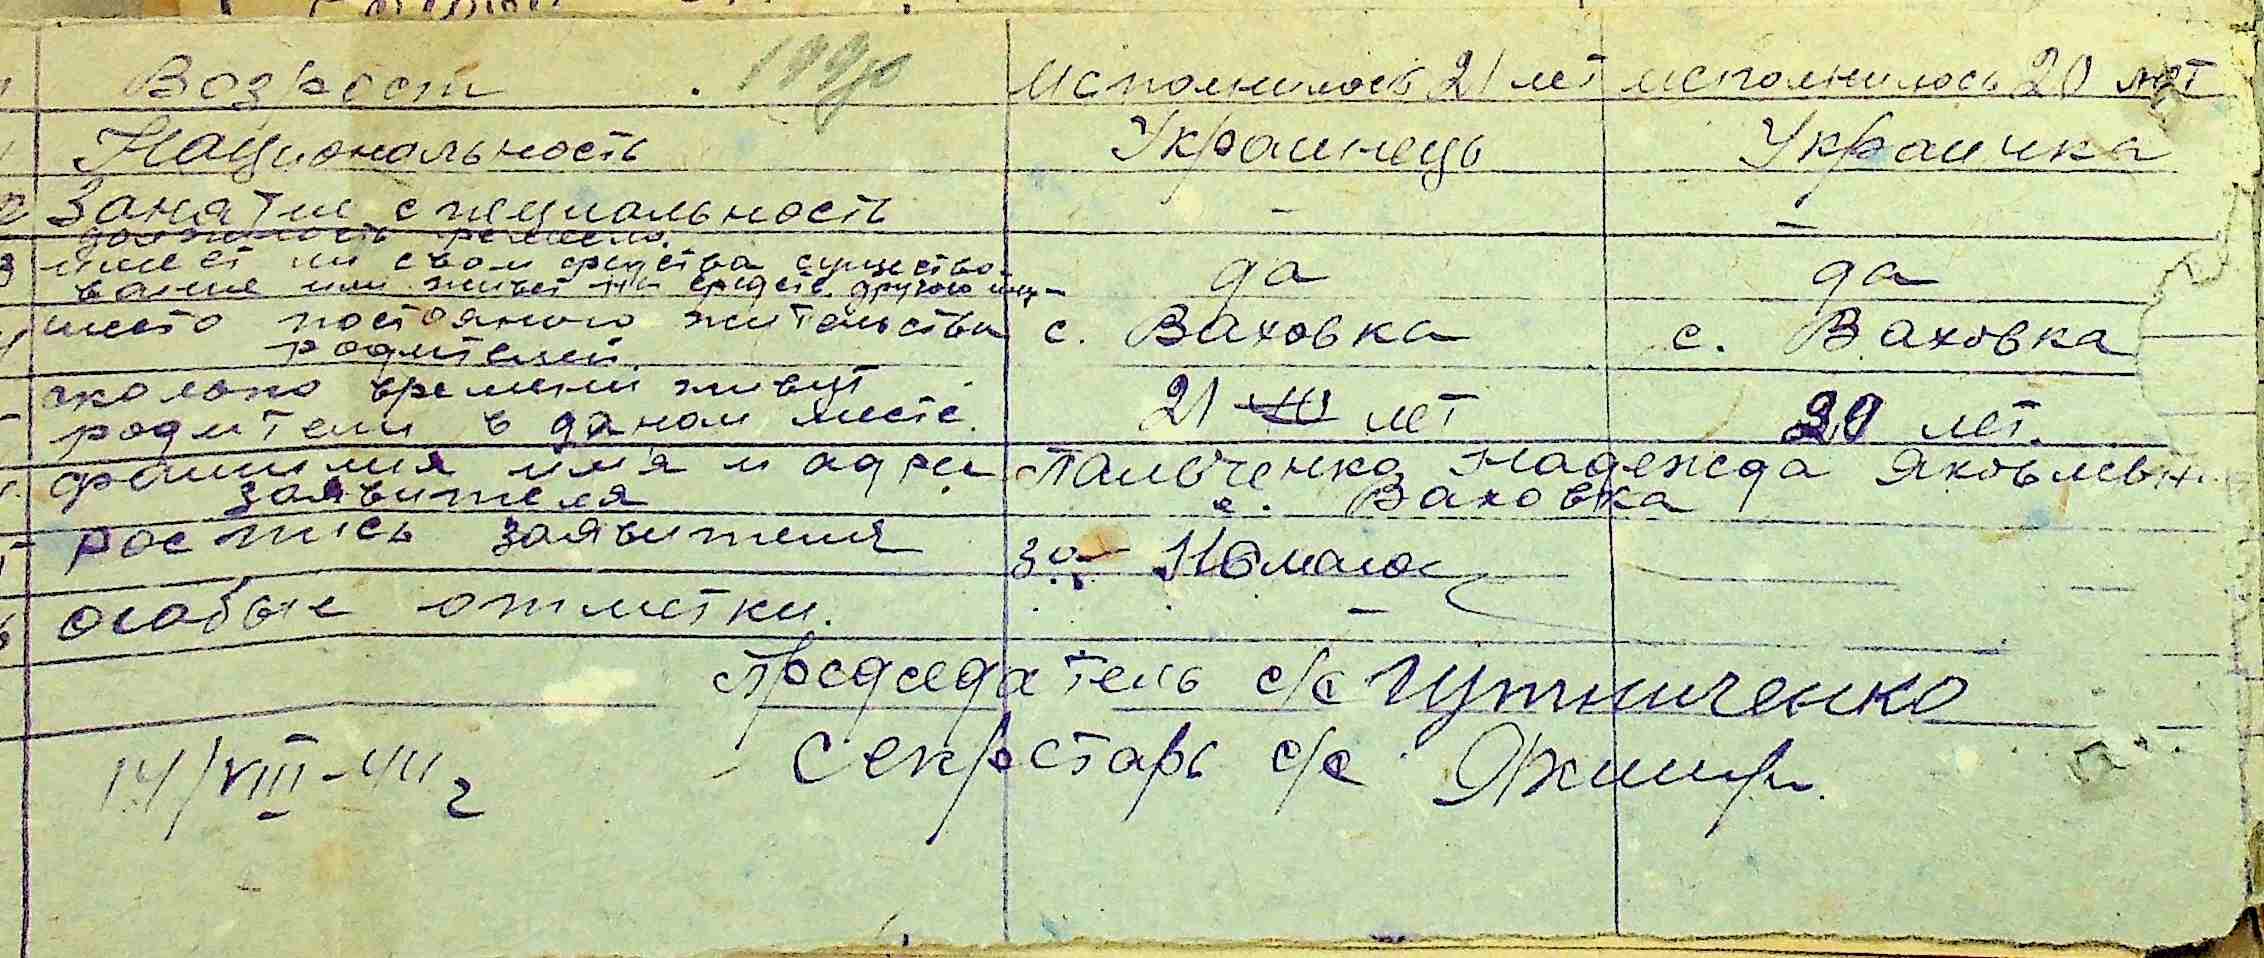 Возрост исполнилось 21 лет исполнилось 20 лет
Национальность Украинець Украинка
Занятие специальность – –
должность ремесло.
имеет ли свои средства существо-
вание или живет на средств. другого лиц- да да
место постояного жительства с. Ваховка с. Ваховка
родителей
сколько времени живут
родители в даном месте. 21 лет 20 лет.
фамилия имя и адрес Пальченко Надежда Яковлевн.
заявителя с. Ваховка
роспись заявителя за
особые отметки. –
Председатель с/с
Секретарь с/с
14/VIII-44 г